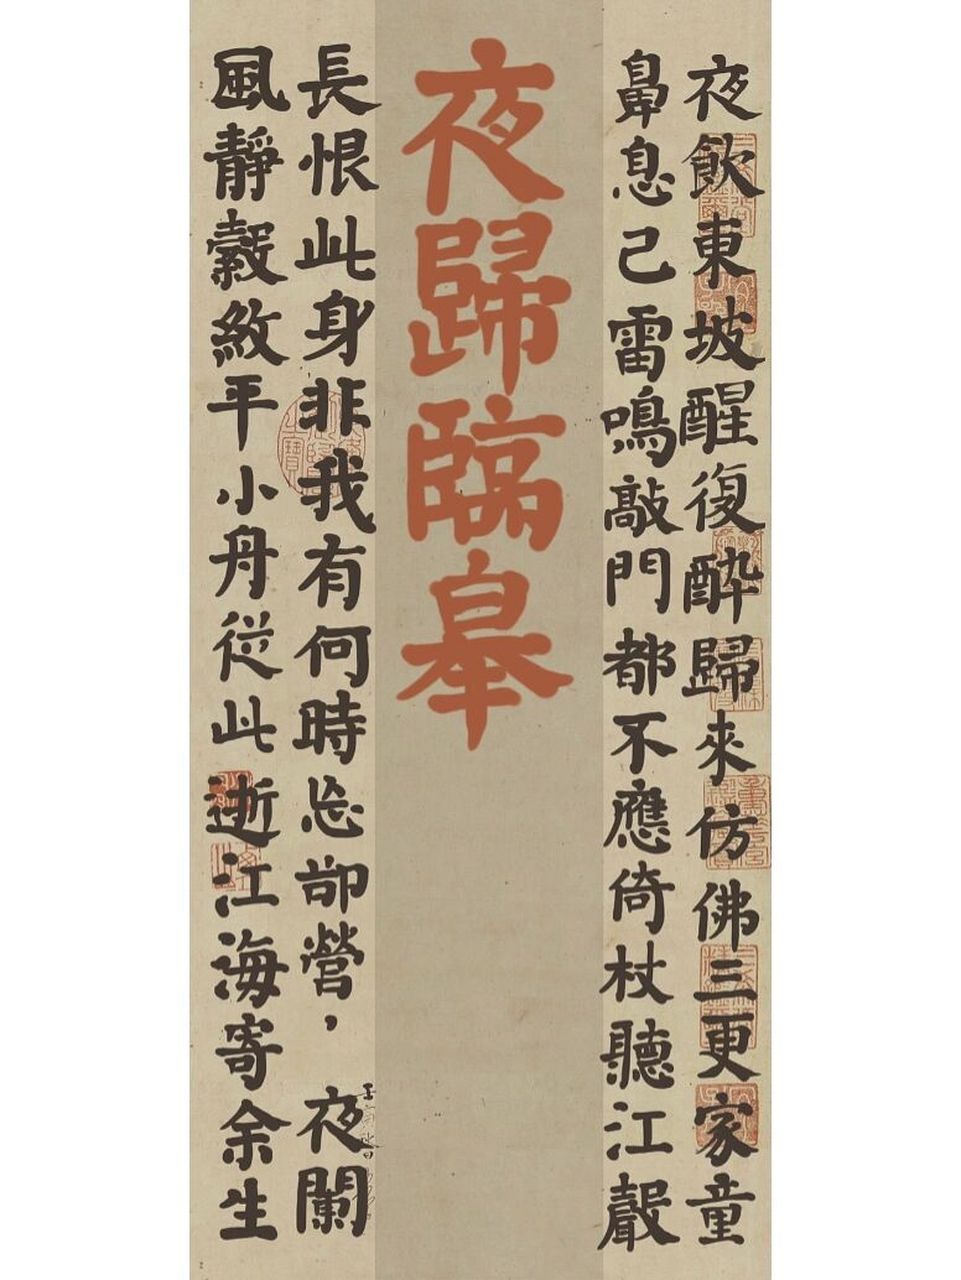 夜飲東坡醒復醉歸來仿佛三更家童
鼻息已雷鳴敲門都不應倚杖聽江聲
夜歸臨皋
長恨此身非我有何時忘卻營，夜闌
風靜縠紋平小舟從此逝江海寄余生